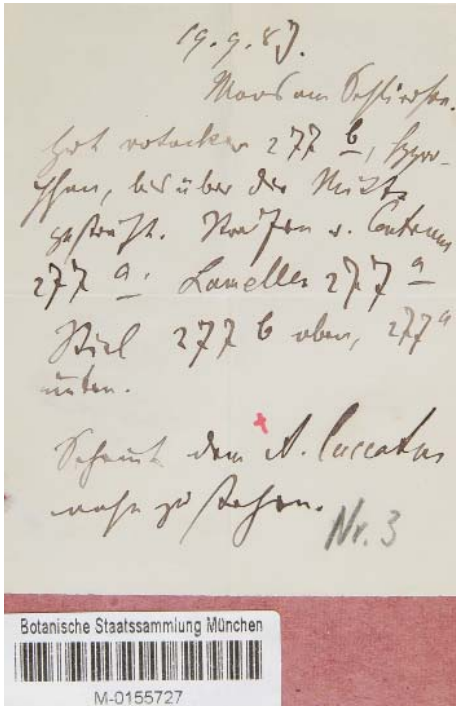 19.9.87.
Moos am Schliersee.
Hut rotocker 277 b, hygro-
phan, bis über der Mitte
gestreift. Streifen u. Centrum
277 a. Lamellen 277 a
Stiel 277 b oben, 277 a
unten.
Scheint dem A. laccatus
nahe zu stehen.
Nr. 3
Botanische Staatssammlung München
M-0155727